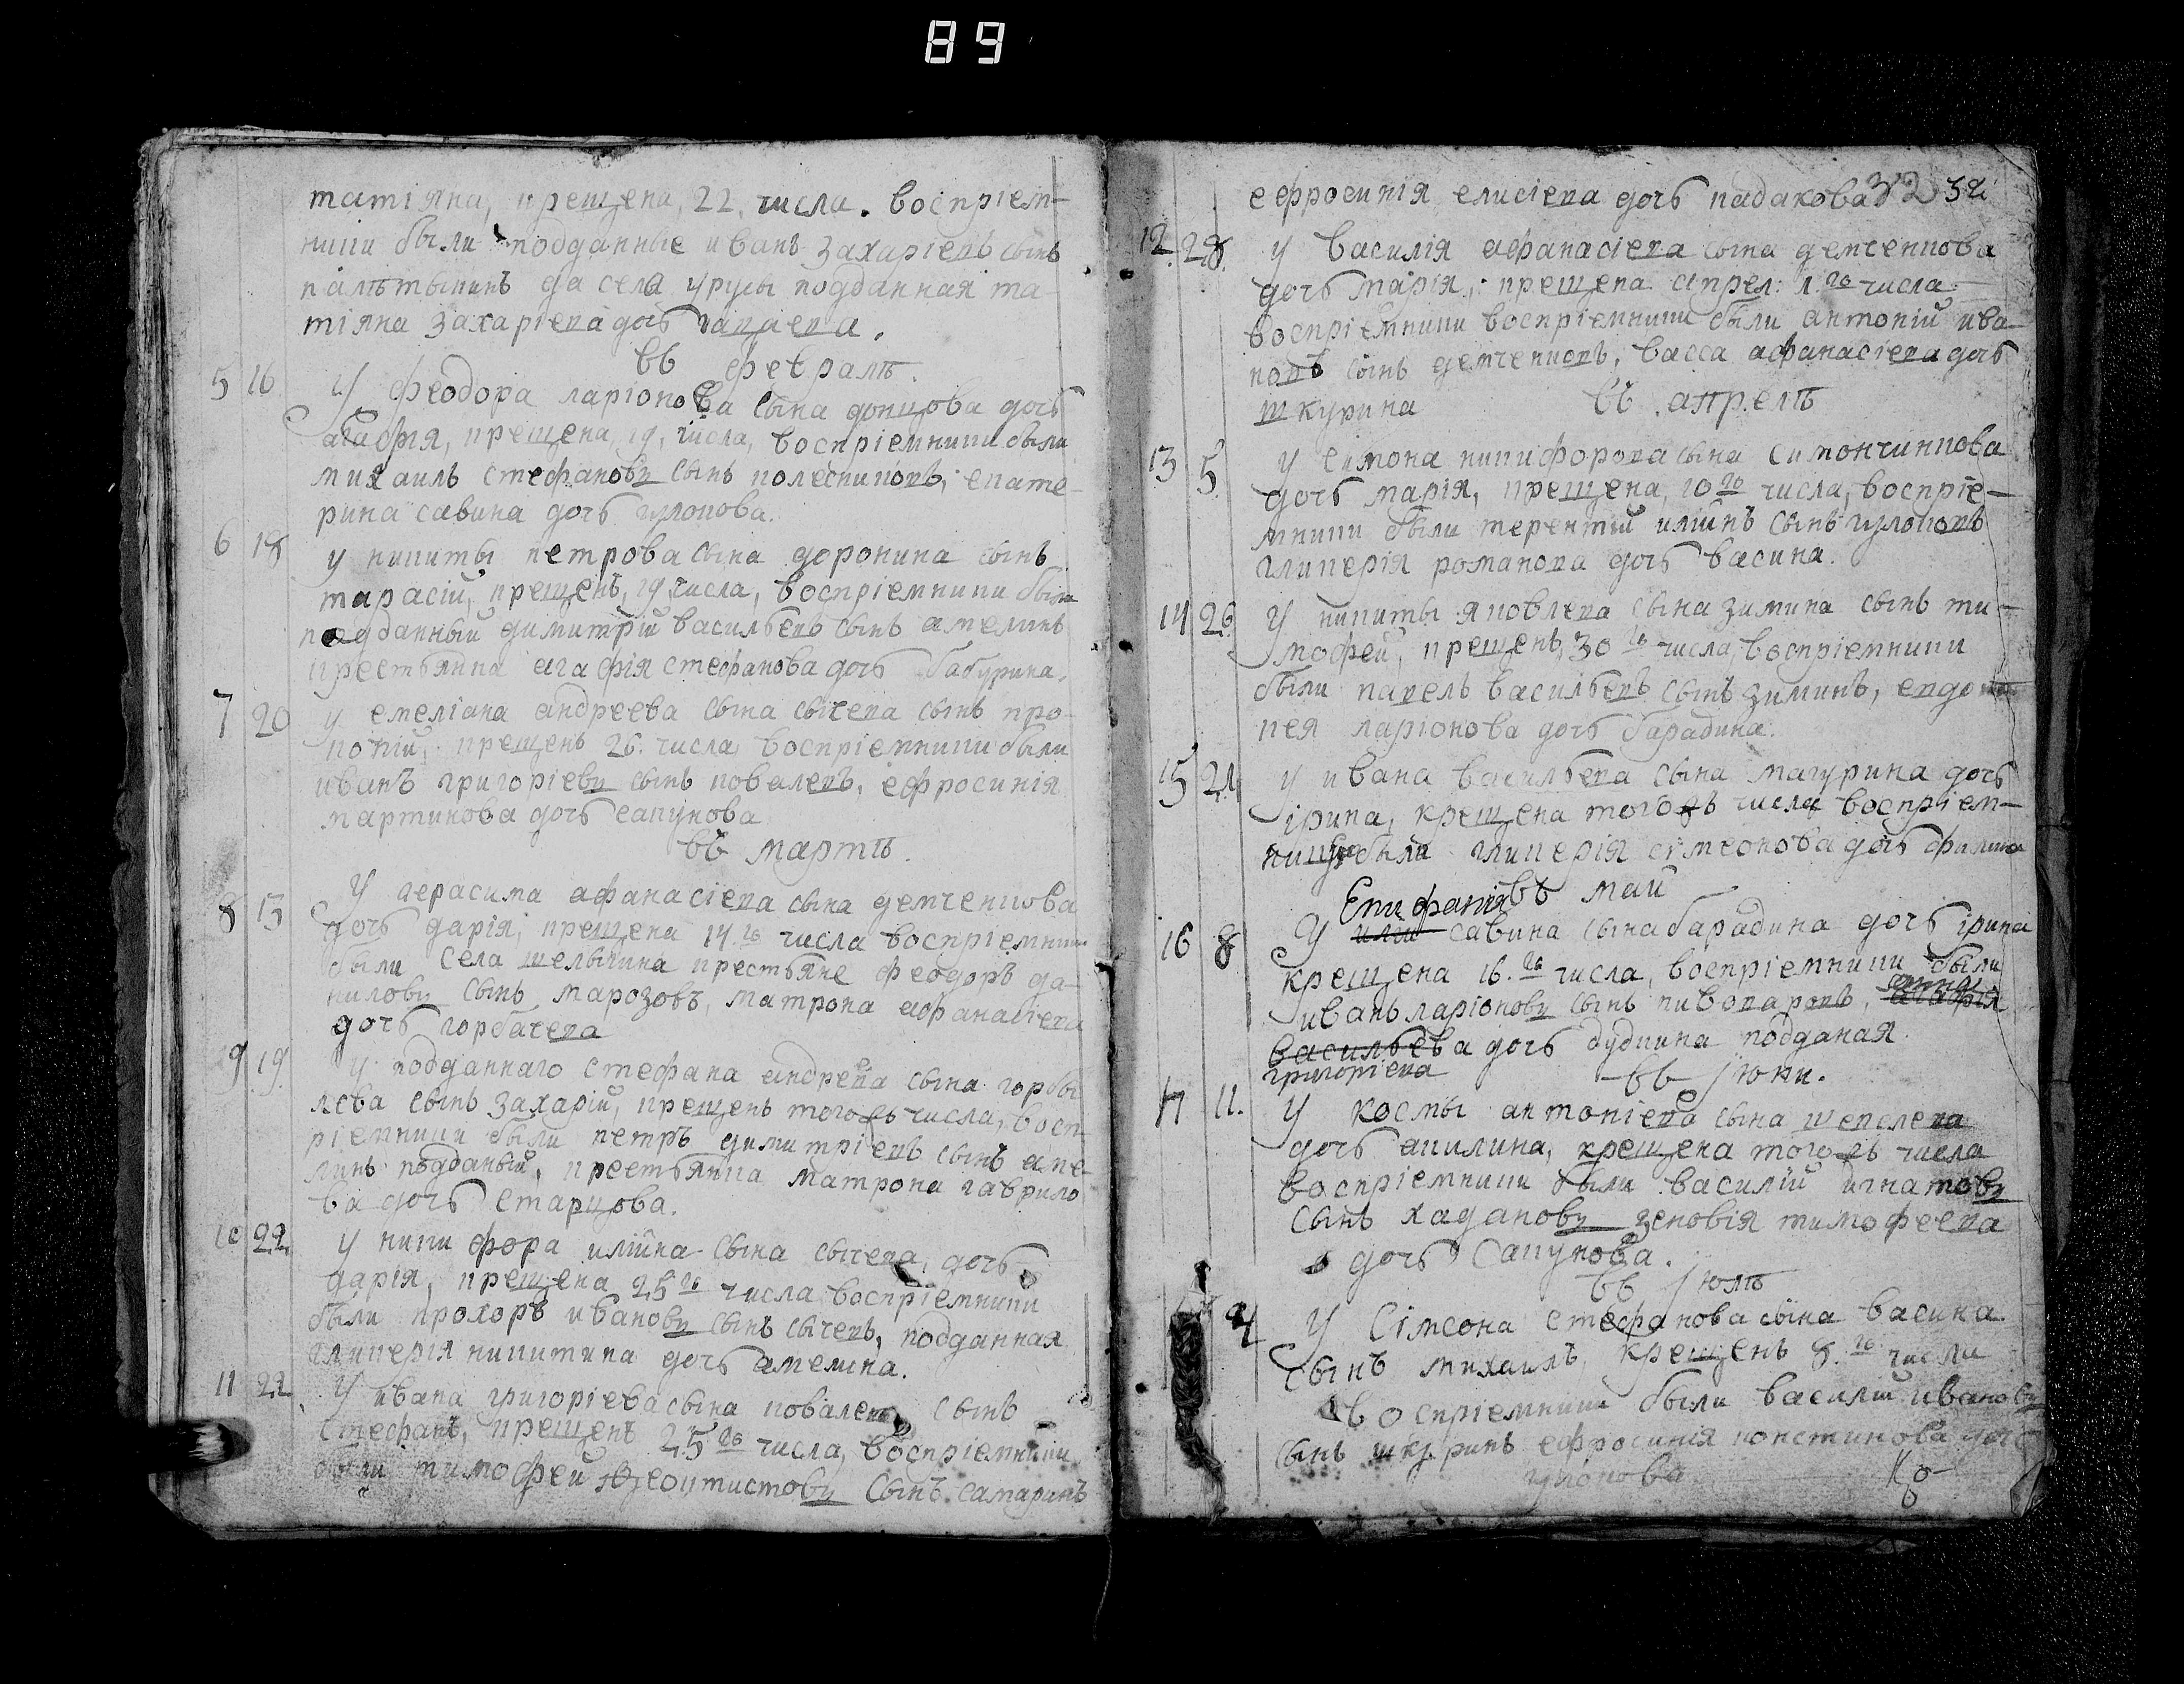 89
татіяна, крещена, 22, числа. воспріем-
ники были подданные иванъ захаріевъ сынъ
да села урусы подданная та
тіяна захаріева дочь
въ февралѣ.
5 16 У феодора ларіонова сына донцова дочь
агафія, крещена, 19, числа, воспріемники были
михаилъ стефановъ сынъ колесниковъ, екате-
рина савина дочь
6 18 у никиты петрова сына доронина сынъ
тарасій, крещенъ, 19, числа, воспріемники были
подданный димитрій васильевъ сынъ амелинъ
крестьянка агафія стефанова дочь бабурина.
7 20 у емеліана андреева сына сычева сынъ про-
копій, крещенъ 26. числа воспріемники были
иванъ григоріевъ сынъ ковалевъ, ефросинія
мартинова дочь сапунова
въ мартѣ.
8 13 У герасима афанасіева сына демченкова
дочь дарія, крещена 14 го числа воспріемники
были села крестьяне феодоръ да-
ниловъ сынъ марозовъ, матрона афанасіева
дочь горбачева
9 19 У подданнаго стефана андрева сына горбы
лева сынъ захарій, крещенъ тогожъ числа, восп-
ріемники были петръ димитріевъ сынъ аме-
линъ подданый, крестьянка матрона гаврило
ва дочь старцова.
10 22. У никифора илійна сына сычева, дочь
дарія, крещена 25 го числа воспріемники
были прохоръ ивановъ сынъ сычевъ, подданная
гликерія никитина дочь амелина.
11 22 У ивана григоріева сына ковалева сынъ
стефанъ, крещенъ 25 го числа, воспріемники
были тимофей феоктистовъ сынъ самаринъ
32 32
ефросинія елисіева дочь кадакова
12. 28. У василія афанасіева сына демченкова
дочь марія, крещена апрел: 1. го числа
воспріемники воспріемники были антоній ива-
новъ сынъ демченковъ, васса афанасіева дочь
шкурина въ апрелѣ
13 5 У симона никифорова сына симончикова
дочь марія, крещена, 10 го числа, воспріе-
мники были терентій илійнъ сынъ
гликерія романова дочь васина.
14 26. У никиты яковлева сына зимина сынъ ти-
мофей, крещенъ, 30 го числа, воспріемники
были павелъ васильевъ сынъ зиминъ, евдо
кея ларіонова дочь барадина.
15 21 У ивана васильева сына мачурина дочь
ірина, крещена тогожъ числа воспріем-
была гликерія сімеонова дочь
Епифанія въ май
16 8 У или савина сына барадина дочь ірина
крещена 16. го числа, воспріемники были
иванъ ларіоновъ сынъ пивоваровъ, агафія
васильева дочь дудкина подданая.
григоріева въ іюни.
17 11. У космы антоніева сына шепелева
дочь акилина, крещена тогожъ числа
воспріемники были василій игнатовъ
сынъ хадановъ зеновія тимофеева
дочь Сапунова.
въ іюлѣ
4 У Сімеона стефанова сына васина
сынъ михаилъ, крещенъ 8. го числа
воспріемники были василій ивановъ
сынъ шкуринъ ефросинія констинова дочь